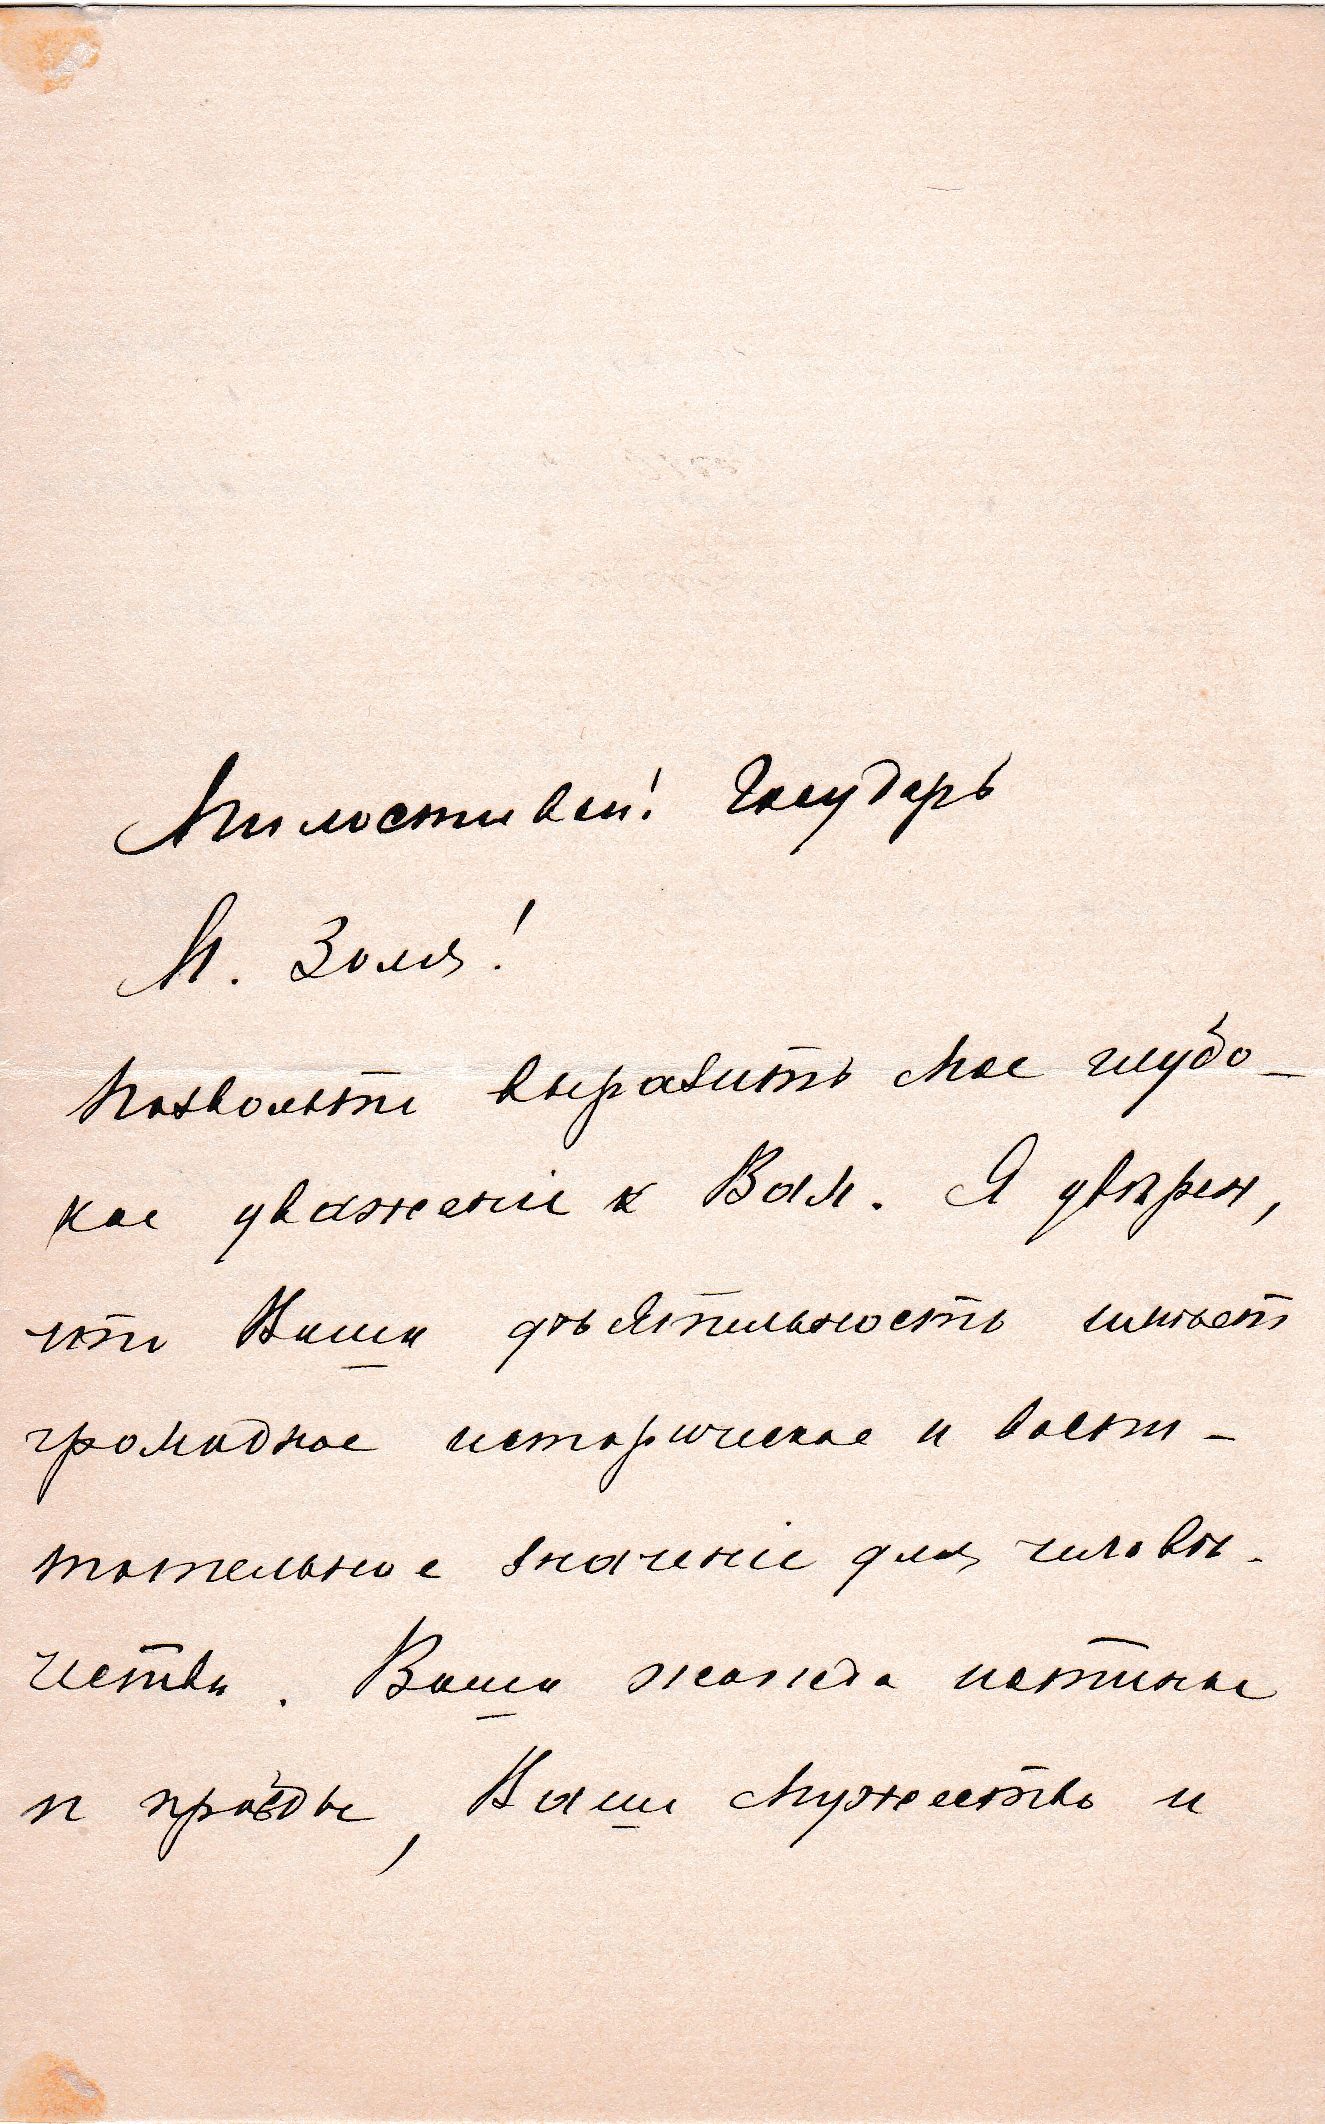 Милостивый! Государь
М. Золя!
Позвольте выразить мое глубо-
кое уваженіе к Вам. Я увѣрен,
что Ваша дѣятельность имѣет
громадное историческое и воспи-
тательное значеніе для человѣ-
чества. Ваша жажда истины
и правды, Ваше мужество и